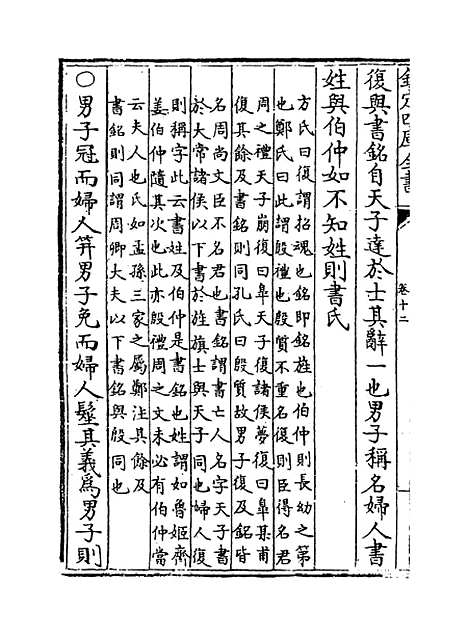 欽定四庫全書
卷十二
復與書銘自天子達於士其辭一也男子稱名婦人書
姓與伯仲如不知姓則書氏
方氏曰復謂招魂也銘即銘旌也伯仲則長幼之第
也鄭氏曰此謂殷禮也殷質不重名復則臣得名君
周之禮天子崩復曰臯天子復諸侯薨復曰臯某甫
復其餘及書銘則同孔氏曰殷質故男子復及銘皆
名周尚文臣不名君也書銘謂書亡人名字天子書
於大常諸侯以下書於旌旗士與天子同也婦人復
則稱字此云書姓及伯仲是書銘也姓謂如魯姬齊
姜伯仲隨其次也此亦殷禮周之文未必有伯仲當
云夫人也氏如孟孫三家之屬鄭注其餘及
書銘則同謂周卿大夫以下書銘與殷同也
○男子冠而婦人筓男子免而婦人髽其義為男子則